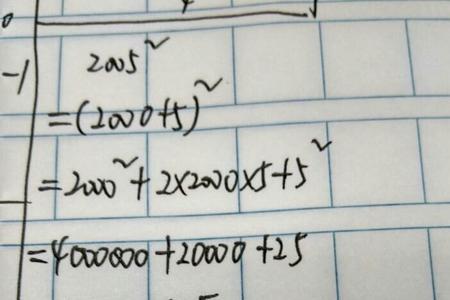 0
-1 2005²
=(2000+5)²
=2000²+2×2000×5+5²
=4000000+20000+25